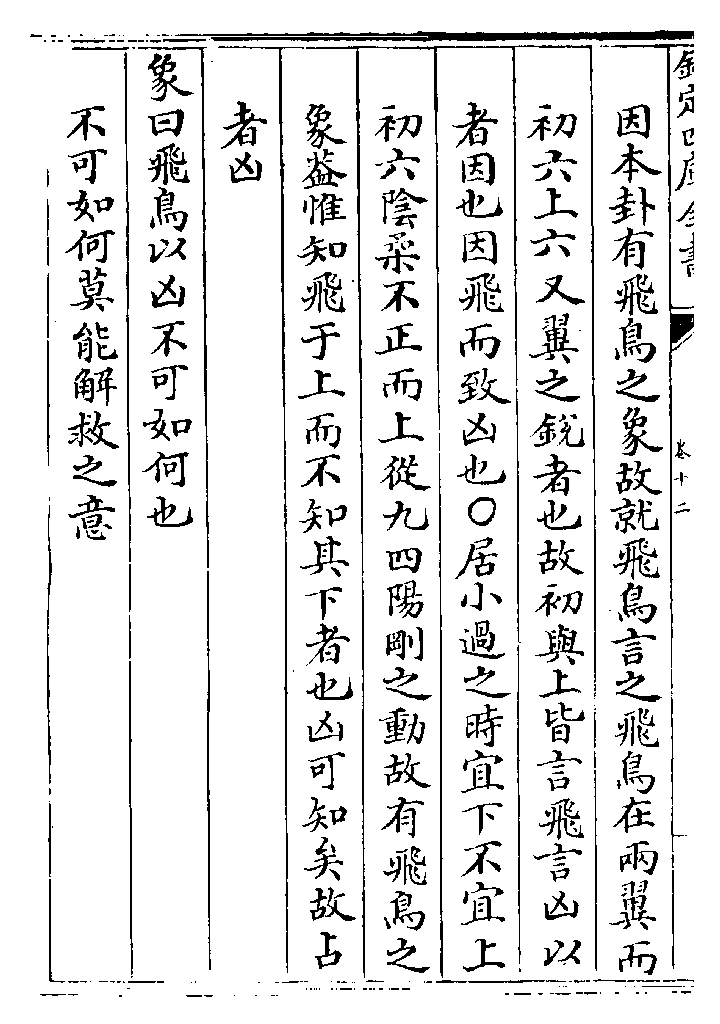 欽定四庫全書
卷十二
因本卦有飛鳥之象故就飛鳥言之飛鳥在兩翼而
初六上六又翼之銳者也故初與上皆言飛言凶以
者因也因飛而致凶也○居小過之時宜下不宜上
初六陰柔不正而上從九四陽剛之動故有飛鳥之
象葢惟知飛于上而不知其下者也凶可知矣故占
者凶
象曰飛鳥以凶不可如何也
不可如何莫能解救之意